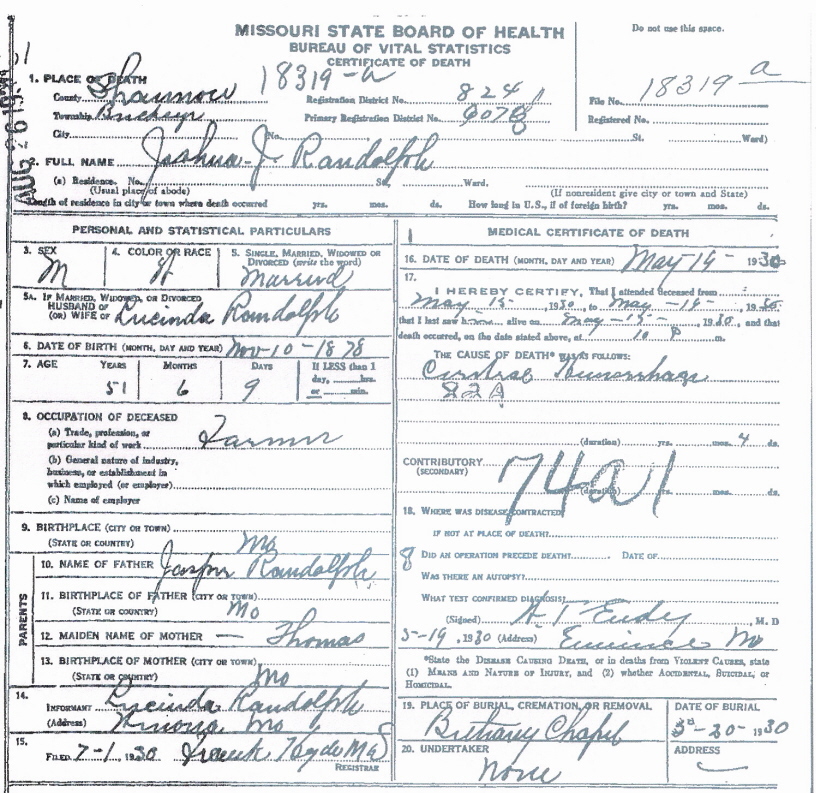 MISSOURI STATE BOARD OF HEALTH
BUREAU OF VITAL STATISTICS
CERTIFICATE OF DEATH
Do not use this space.
AUG 26 19
1. PLACE OF DEATH
18319-a
County Shannon
Registration District No. 824
File No. 18319 a
Township Buckeye
Primary Registration District No.
Registered No.
City No. St. Ward)
2. FULL NAME Joshua J Randolph
(a) Residence. No. St. Ward.
(Usual place of abode) (If nonresident give city or town and State)
Length of residence in city or town where death occurred yrs. mos. ds. How long in U.S., if of foreign birth? yrs. mos. ds.
PERSONAL AND STATISTICAL PARTICULARS
3. SEX 4. COLOR OR RACE 5. SINGLE, MARRIED, WIDOWED OR
DIVORCED (write the word)
M W Married
5A. IF MARRIED, WIDOWED, OR DIVORCED
HUSBAND OF
(OR) WIFE OF Lucinda Randolph
6. DATE OF BIRTH (MONTH, DAY AND YEAR) Nov-10-1878
7. AGE YEARS MONTHS DAYS If LESS than 1
day, hrs.
or min.
51 6 9
8. OCCUPATION OF DECEASED
(a) Trade, profession, or
particular kind of work Farmer
(b) General nature of industry,
business, or establishment in
which employed (or employer)
(c) Name of employer
9. BIRTHPLACE (CITY OR TOWN)
(STATE OR COUNTRY) Mo
PARENTS
10. NAME OF FATHER Jasper Randolph
11. BIRTHPLACE OF FATHER (CITY OR TOWN)
(STATE OR COUNTRY) Mo
12. MAIDEN NAME OF MOTHER — Thomas
13. BIRTHPLACE OF MOTHER (CITY OR TOWN)
(STATE OR COUNTRY) Mo
14.
INFORMANT Lucinda Randolph
(Address) Winona Mo
15.
FILED 7-1, 1930 Frank Hyde MD
REGISTRAR
MEDICAL CERTIFICATE OF DEATH
16. DATE OF DEATH (MONTH, DAY AND YEAR) May 19- 1930
17.
I HEREBY CERTIFY, That I attended deceased from
May 15-, 1930, to May -19-, 1930
that I last saw alive on May -19-, 1930, and that
death occurred, on the date stated above, at 10 P m.
THE CAUSE OF DEATH* WAS AS FOLLOWS:
Cerebral Hemorrhage
82A
(duration) yrs. mos. 4 ds.
CONTRIBUTORY
(SECONDARY)
74a1
(duration) yrs. mos. ds.
18. WHERE WAS DISEASE CONTRACTED
IF NOT AT PLACE OF DEATH?
8 DID AN OPERATION PRECEDE DEATH? DATE OF
WAS THERE AN AUTOPSY?
WHAT TEST CONFIRMED DIAGNOSIS?
(Signed) A T Eudy, M. D
5-19, 1930 (Address) Eminence Mo
*State the DISEASE CAUSING DEATH, or in deaths from VIOLENT CAUSES, state
(1) MEANS AND NATURE OF INJURY, and (2) whether ACCIDENTAL, SUICIDAL, or
HOMICIDAL.
19. PLACE OF BURIAL, CREMATION, OR REMOVAL DATE OF BURIAL
Bethany Chapel 5-20-1930
20. UNDERTAKER ADDRESS
None